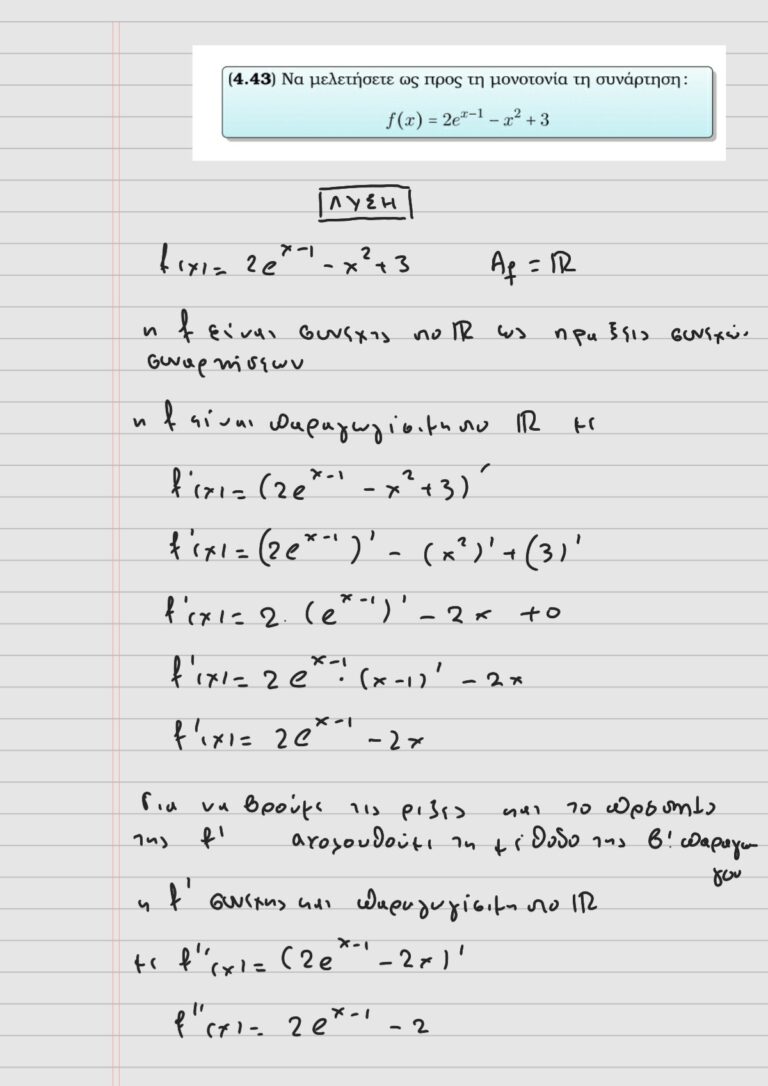 (4.43) Να μελετήσετε ως προς τη μονοτονία τη συνάρτηση:
f(x) = 2e^{x−1} − x² + 3
ΛΥΣΗ
f(x) = 2e^{x-1} - x² + 3 A_f = ℝ
η f είναι συνεχης στο ℝ ως πραξεις συνεχών
συναρτήσεων
η f είναι παραγωγίσιμη στο ℝ με
f'(x) = (2e^{x-1} - x² + 3)'
f'(x) = (2e^{x-1})' - (x²)' + (3)'
f'(x) = 2. (e^{x-1})' - 2x + 0
f'(x) = 2e^{x-1}. (x-1)' - 2x
f'(x) = 2e^{x-1} - 2x
Για να βρούμε τις ριζες και το πρόσημο
της f' ακολουθούμε τη μέθοδο της β' παραγω
γου
η f' συνεχης και παραγωγίσιμη στο ℝ
με f''(x) = (2e^{x-1} - 2x)'
f''(x) = 2e^{x-1} - 2